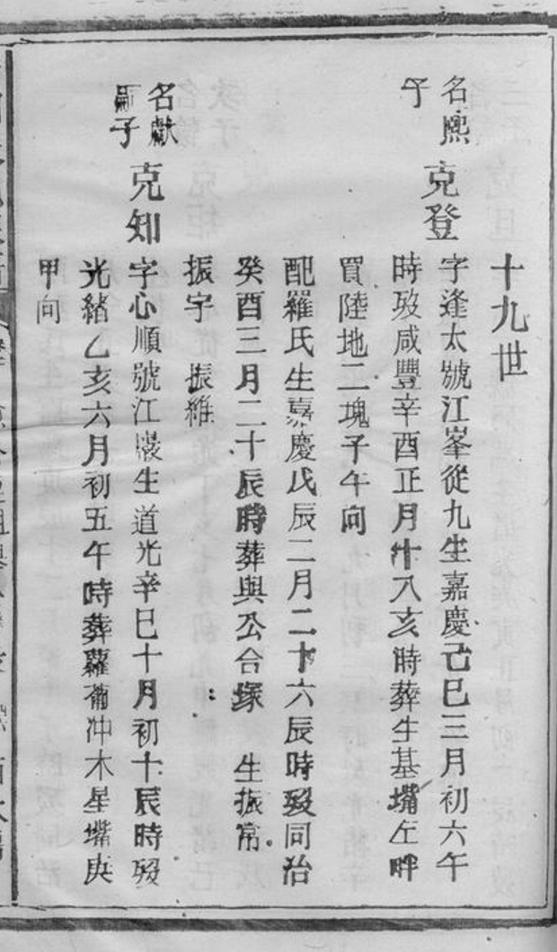 十九世
名熙子 克登
字逢太號江峯從九生嘉慶己巳三月初六午
時歿咸豐辛酉正月廿八亥時葬生基嘴左畔
買陸地二塊子午向
配羅氏生嘉慶戊辰二月二十六辰時歿同治
癸酉三月二十辰時葬與公合塚 生振常
振宇 振維
名獻嗣子 克知
字心順號江巖生道光辛巳十月初十辰時歿
光緒乙亥六月初五午時葬蘿蔔冲木星嘴庚
甲向